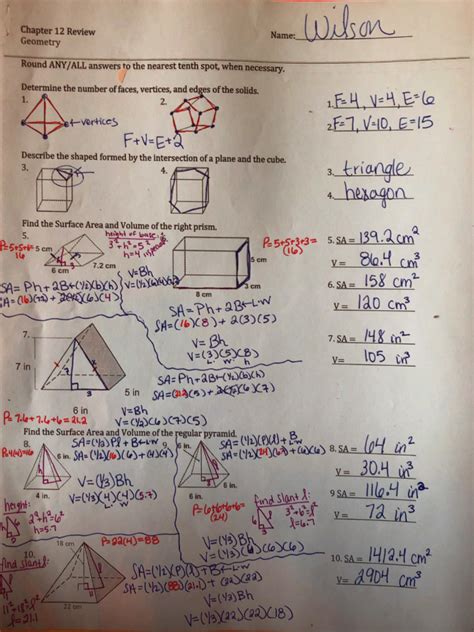 Chapter 12 Review
Geometry
Name: Wilson
Round ANY/ALL answers to the nearest tenth spot, when necessary.
Determine the number of faces, vertices, and edges of the solids.
1.
2.
vertices
F+V=E+2
1. F=4, V=4, E=6
2. F=7, V=10, E=15
Describe the shaped formed by the intersection of a plane and the cube.
3.
4.
3. triangle
4. hexagon
Find the Surface Area and Volume of the right prism.
5.
height of base:
3²+h²=5²
h=4
P=5+5+6=
16
5 cm
6 cm
7.2 cm
V=Bh
SA=Ph+2B
P=5+5+3+3=
(16)
5 cm
3 cm
8 cm
SA=Ph+2B←L·W
SA=(16)(8)+2(3)(5)
V=Bh
V=(3)(5)(8)
L· W· h
5. SA= 139.2 cm²
V= 86.4 cm³
6. SA= 158 cm²
V= 120 cm³
7.
7 in
6 in
5 in
SA=Ph+2B←(½)(b)(h)
P=7.6+7.6+6=21.2
V=Bh
V=(½)(6)(7)(5)
7. SA= 148 in²
V= 105 in³
Find the Surface Area and Volume of the regular pyramid.
8.
P=4(4)=16
6 in.
4 in.
SA=(½)Pl+B←L·W
SA=(½)(16)(6)+(4)(4)
V=(⅓)Bh
V=(⅓)(4)(4)(5.7)
height:
2²+h²=6²
h=5.7
9.
6 in.
6 in.
6 in.
SA=(½)(P)(l)+B
P=6+6+6+6
(24)
find slant l:
3²+6²=l²
l=6.7
V=(⅓)Bh
V=(⅓)(6)(6)(6)
8. SA= 64 in²
V= 30.4 in³
9 SA= 116.4 in²
V= 72 in³
10.
18 cm
22 cm
P=22(4)=88
find slant l:
11²+18²=l²
l=21.1
SA=(½)(P)(l)+B←L·W
SA=(½)(88)(21.1)+(22)(22)
V=(⅓)Bh
V=(⅓)(22)(22)(18)
10. SA= 1412.4 cm²
V= 2904 cm³